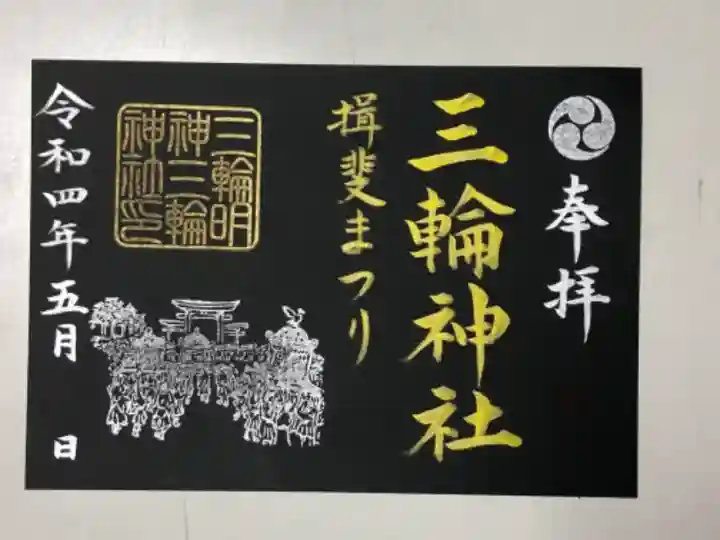 奉拝
三輪神社
揖斐まつり
三輪明
神三輪
神社印
令和四年五月 日